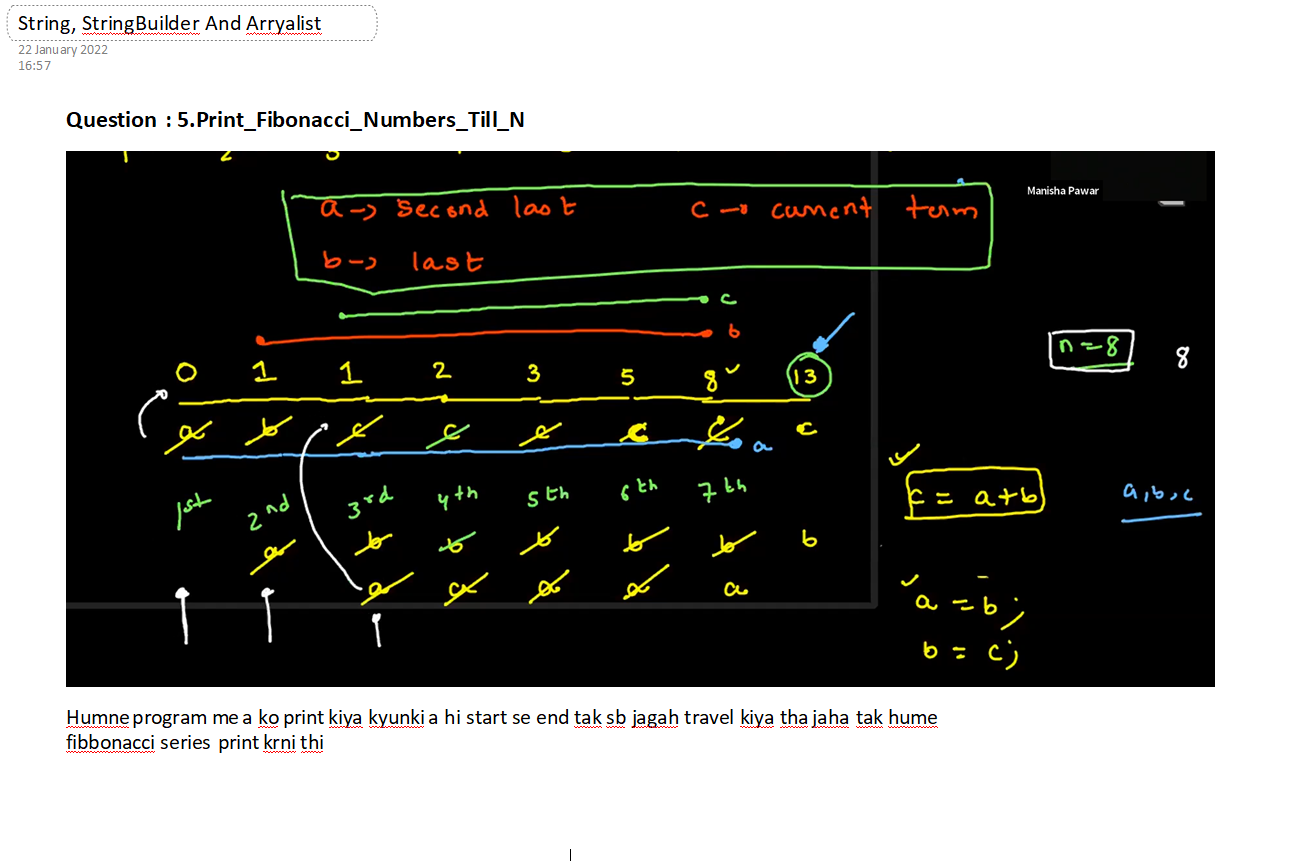 String, StringBuilder And Arryalist
22 January 2022
16:57
Question : 5.Print_Fibonacci_Numbers_Till_N
Manisha Pawar
a -> second last c -> current term
b -> last
c
b
n = 8 8
0 1 1 2 3 5 8 13
a b c c c c c c
a
1st 2nd 3rd 4th 5th 6th 7th
c = a+b a,b,c
a b b b b b b
a a a a a
a = b;
b = c;
Humne program me a ko print kiya kyunki a hi start se end tak sb jagah travel kiya tha jaha tak hume
fibbonacci series print krni thi